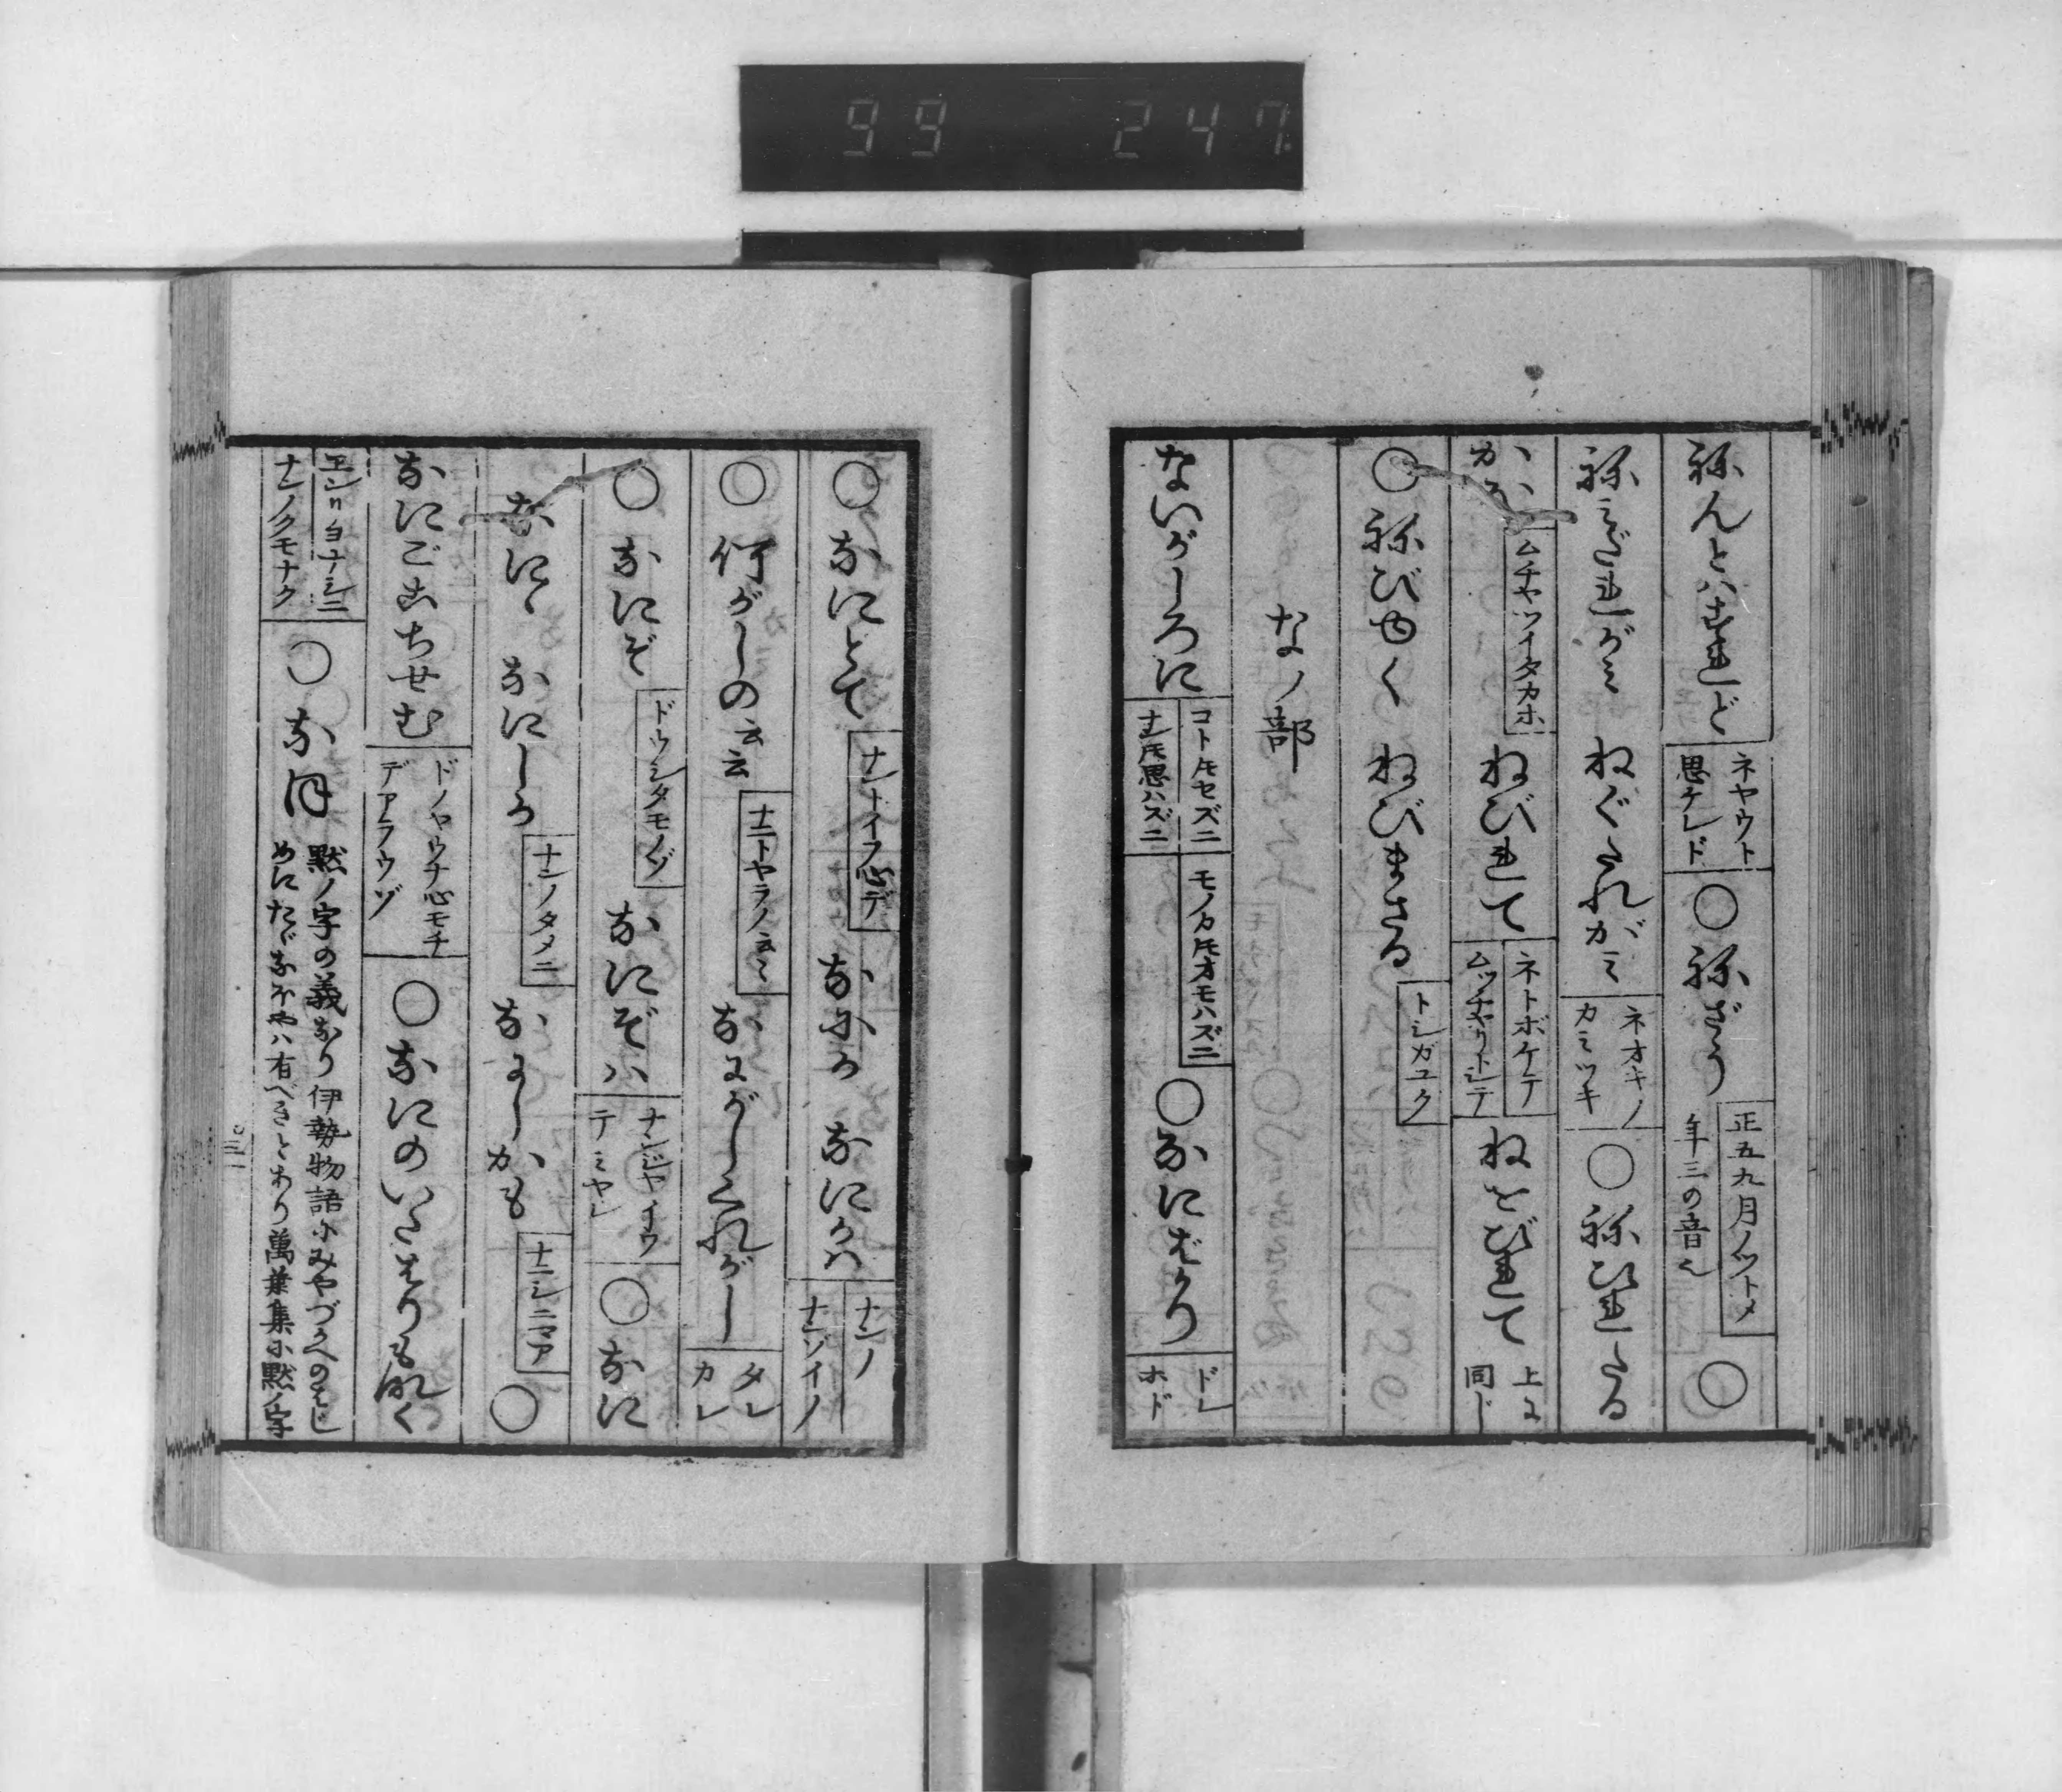 99 247
ねんとはすれど ネヤウト思ケレド ○ねざう 正五九月ノツトメ 年三の音也 ○
ねみだれがみ ねぐたれがみ ネオキノカミツキ ○ねびれたる
かほ ムチヤツイタカホ ねびれて ネトボケテ ムツチヤリトシテ ねをびれて 上に同じ
○ねびゆく ねびまさる トシガユク
なノ部
ないがしろに コトトモセズニ ナントモ思ハズニ モノカトモオモハズニ ○なにばかり ドレホド
○なにとて ナントイフ心デ なにか なにかは ナンノ ナンゾイノ
○何がしの云云 ナニトヤラノ云々 なにがしくれがし タレカレ
○なにぞ ドウシタモノゾ なにぞは ナンジヤイウテミヤレ ○なに
なに なにしか ナンノタメニ なにしかも ナニシニマア ○
なにごこちせむ ドノヤウナ心モチデアラウゾ ○なにのいたはりもなく
ナンノクモナク ○なほ 黙ノ字の義なり 伊勢物語にみやづかへのはじ
めにたゞなほやは有べきとあり 萬葉集に黙ノ字